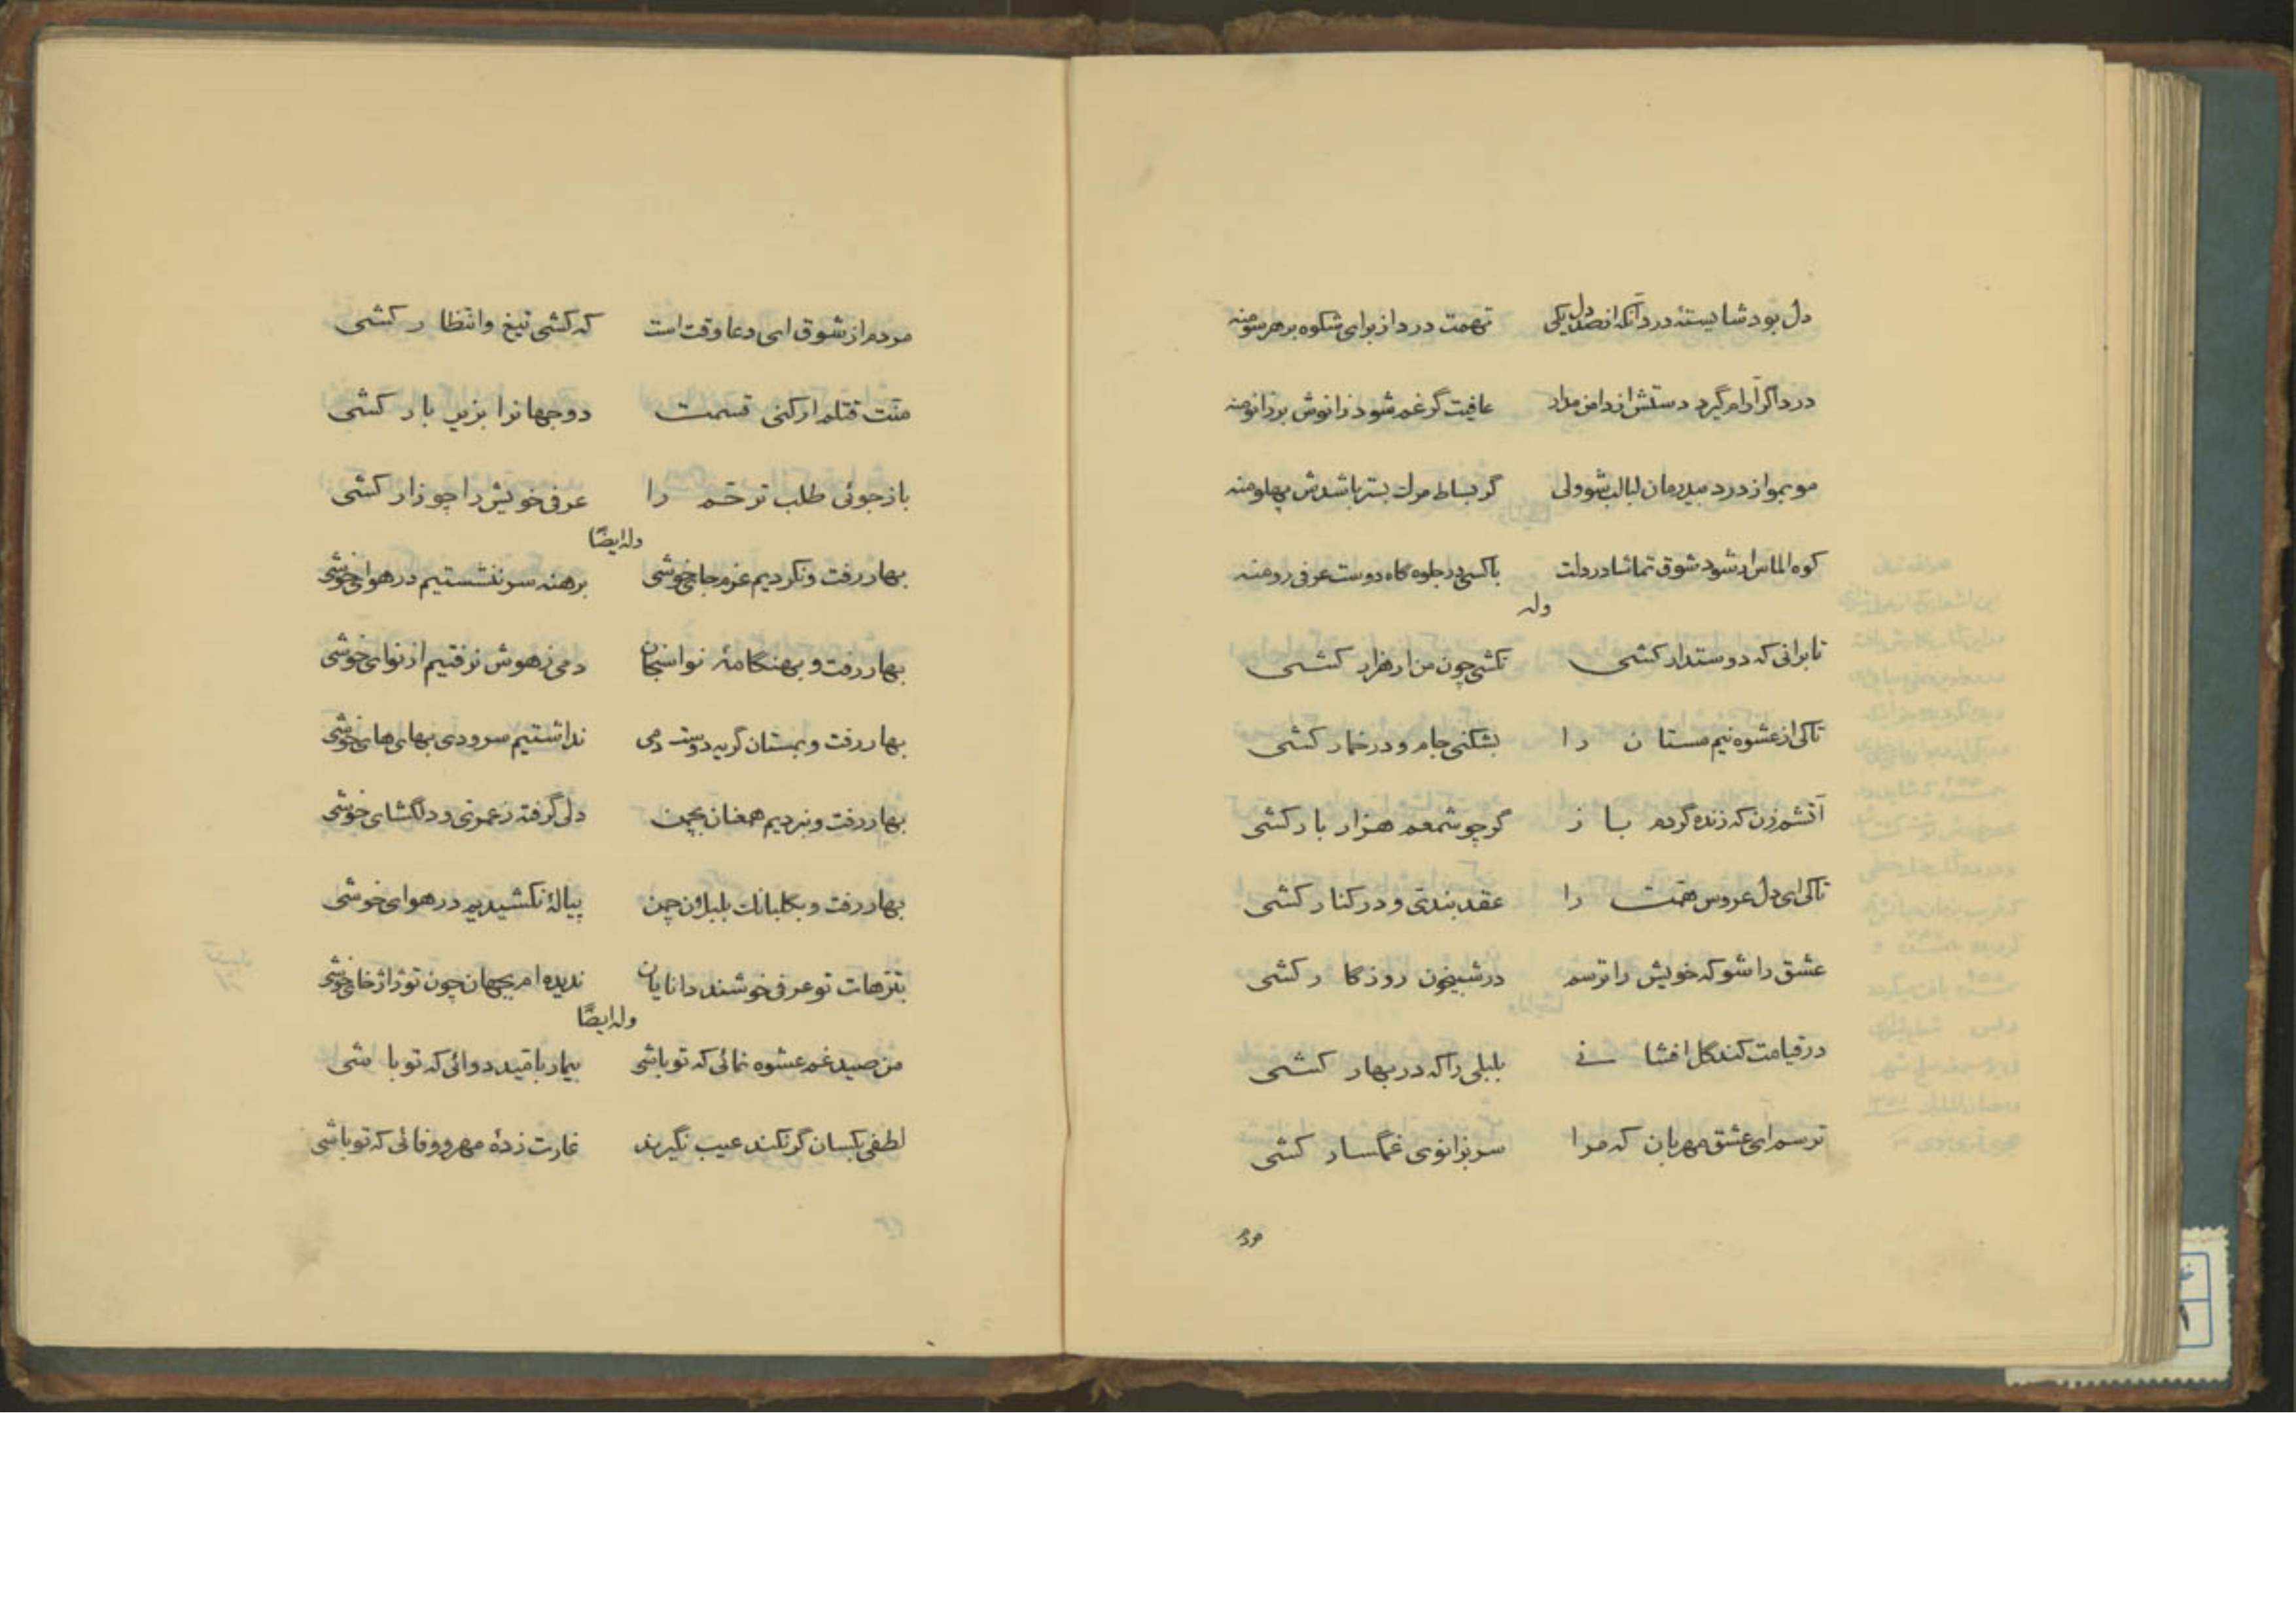 دل بود شایستهٔ درد آنکه از صد دل یکی تهمت درد از برای شکوه بر هر سو منه
درد اگر آرام گیرد دستش از دامن مدار عافیت گر غم شود زانوش بر زانو منه
مو نمو از درد بیدرمان لبالب شو ولی گر بساط مرک بستر باشدش پهلو منه
کوه الماس ار شود شوق تماشا در دلت باکسی در جلوه گاه دوست عرفی رو منه
وله
تا برانی که دوستدار کشی نکشی چون من ار هزار کشی
تاکی از عشوه نیم مستان را بشکنی جام و در خمار کشی
آتشم زن که زنده گردم باز گر چو شمعم هزار بار کشی
تاکی ای دل عروس همّت را عقد بندی و در کنار کشی
عشق را شو که خویش را ترسم در شبیخون روزگار کشی
در قیامت کند گل افشانی بلبلی را که در بهار کشی
ترسم ای عشق مهربان که مرا سر بزانوی غمگسار کشی
مردم
مردم از شوق ای دعا وقت است که کشی تیغ و انتظار کشی
منّت قتلم ار کنی قسمت دو جهانرا بزیر بار کشی
باز جوئی طلب ترحّم را عرفی خویش را چو زار کشی
وله ایضًا
بهار رفت و نکردیم عزم جای خوشی برهنه سر ننشستیم در هوای خوشی
بهار رفت و بهنگامهٔ نواسنجان دمی ز هوش نرفتیم از نوای خوشی
بهار رفت و بمستان گریه دوست دمی نداشتیم سرودی بهای های خوشی
بهار رفت و نبردیم همعنان بچمن دلی گرفته ز عمری و دلگشای خوشی
بهار رفت و بگلبانک بلبلان چمن پیالهٔ نکشیدیم در هوای خوشی
بترّهات تو عرفی خوشند دانایان ندیده ام بجهان چون تو ژاژ خای خوشی
وله ایضًا
من صید غم عشوه نمائی که تو باشی بیمار بامّید دوائی که تو باشی
لطفی بکسان گر نکند عیب نگیرند غارت زدهٔ مهر و وفائی که تو باشی